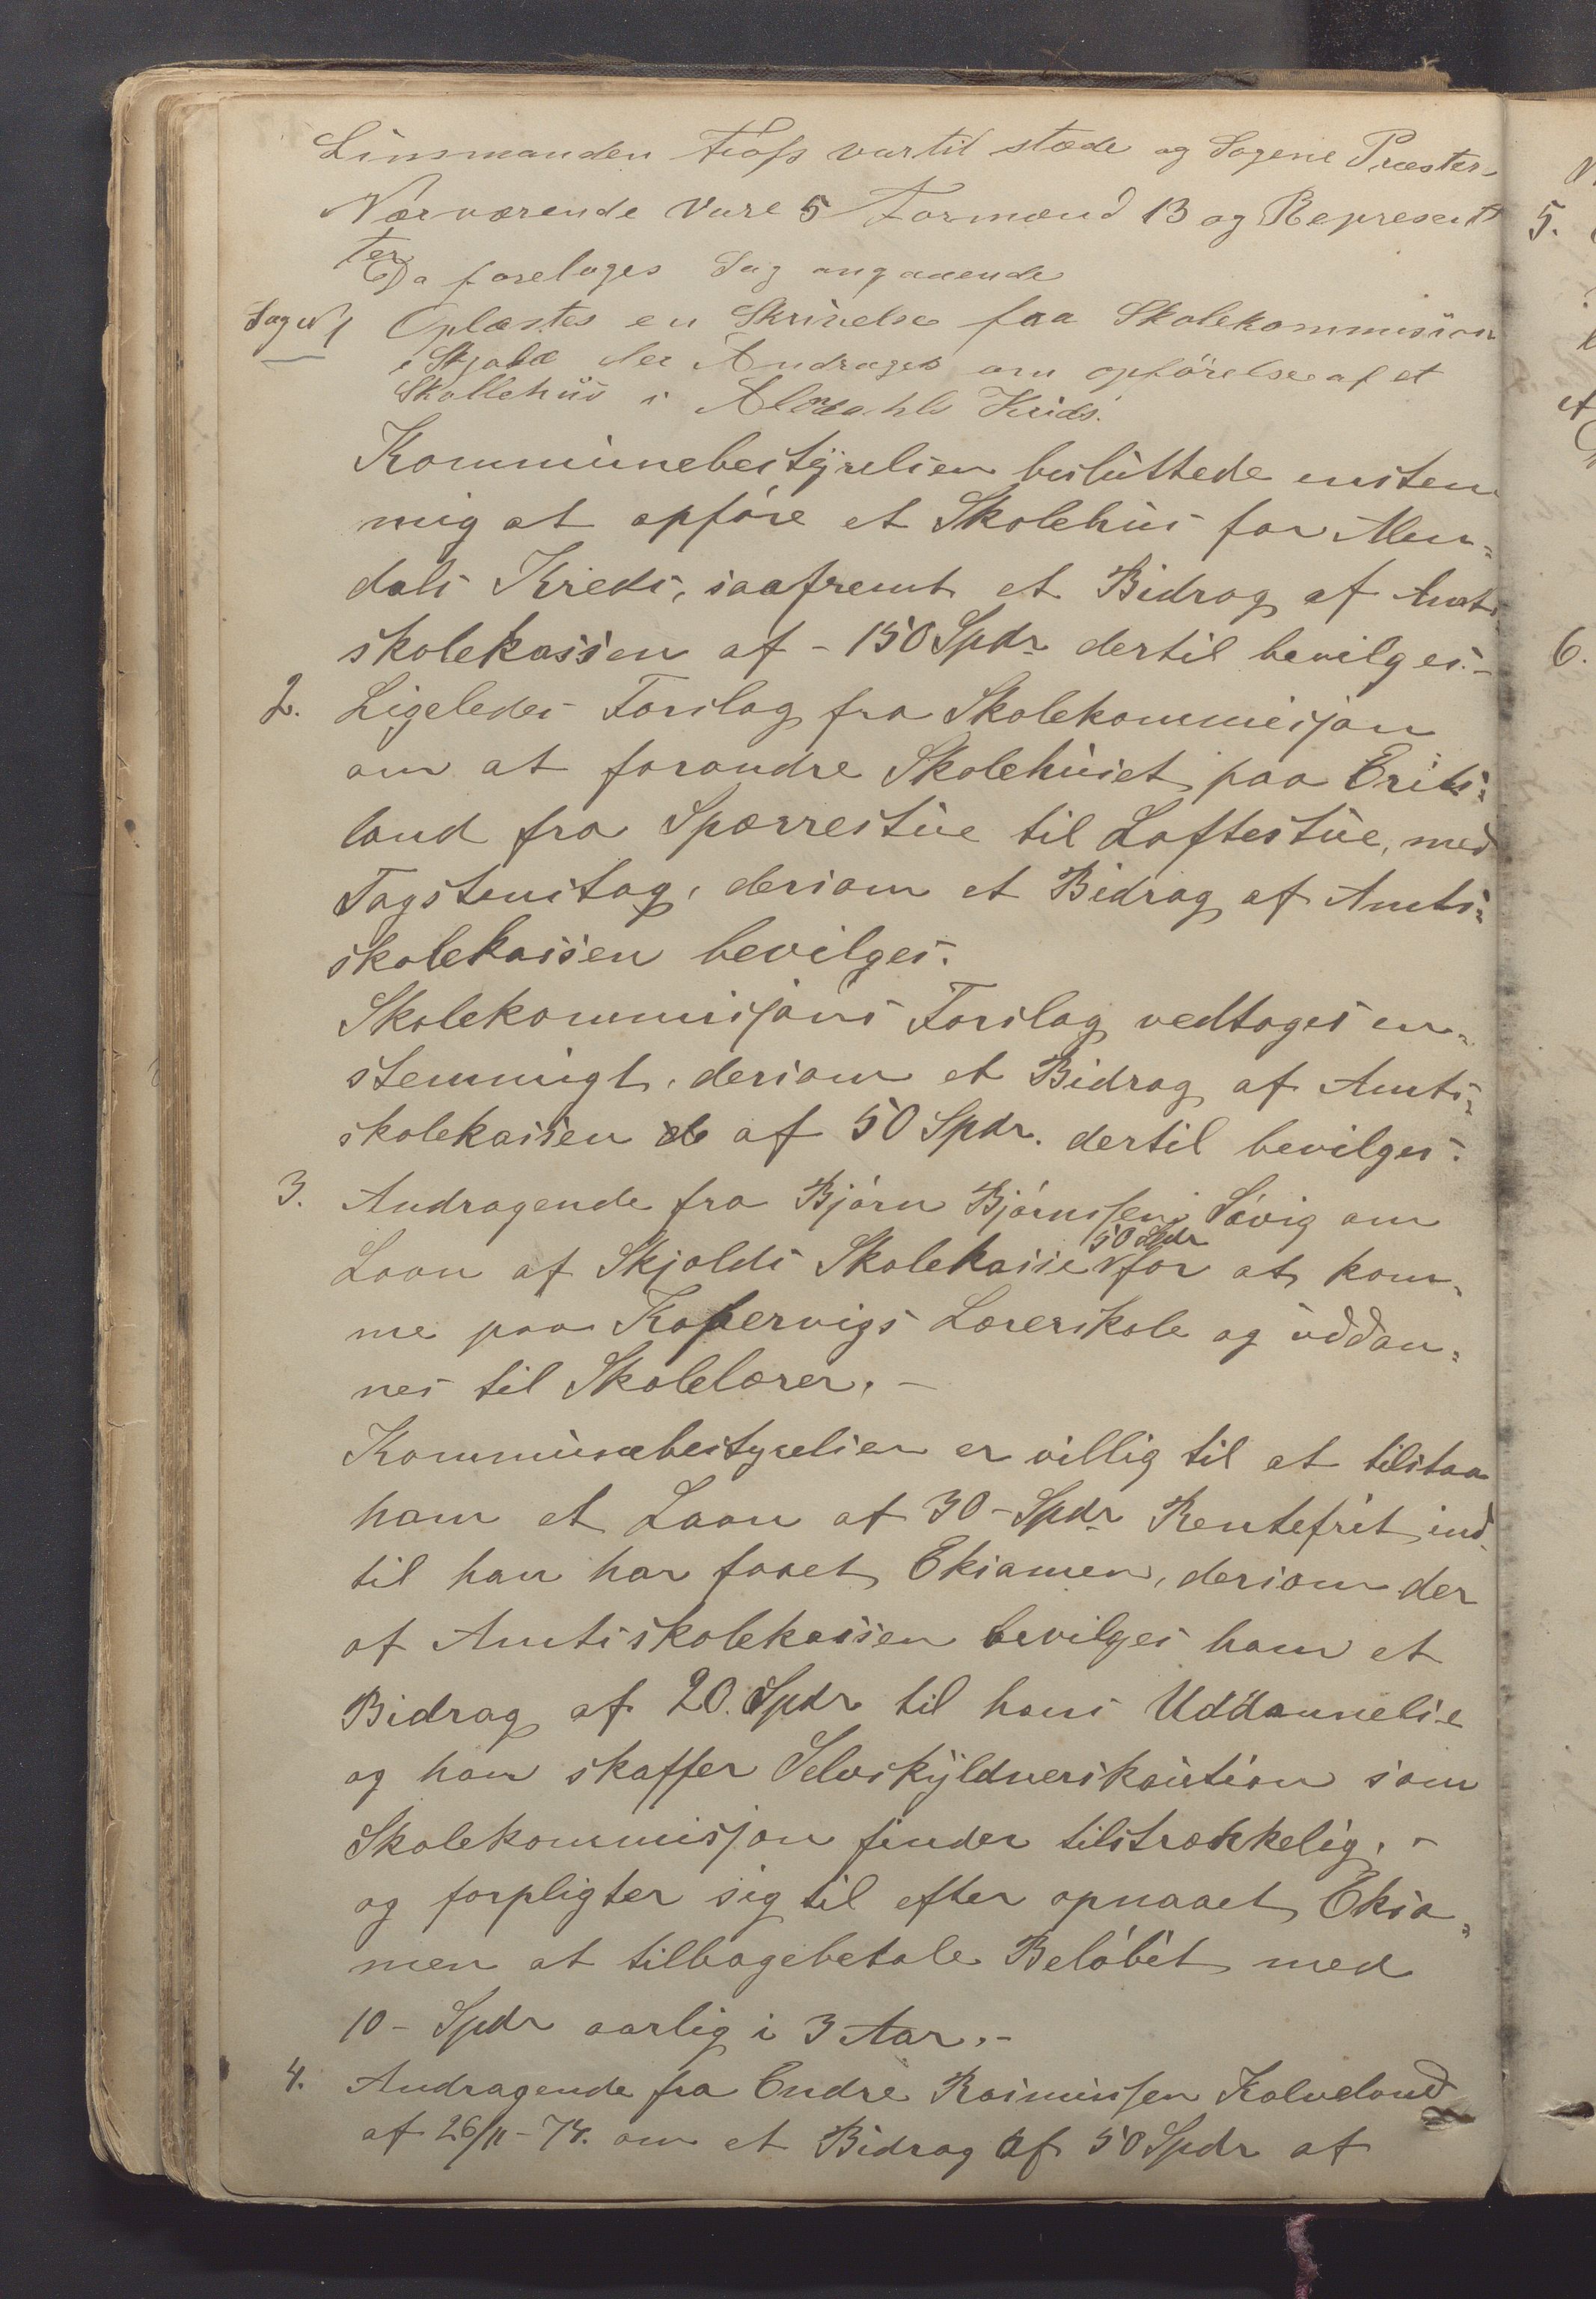 Linsmanden Fross var til stæde og Sogene Præster
Nærværende Vare 5 Formænd 13 og Represent
ter
Da foretoges Sag angaaende
Sag N 1 Oplæstes en Skrivelse fra Skolekommission
i Skjold der Andrages om opförelse af et
Skollehus i Alvdahls Kridс.
Kommunebestÿrelsen besluttede enstem
mig at opføre et Skolehus for Alm-
dals Kreds, saafremt et Bidrag af Amts
skolekassen af - 150 Spdr dertil bevilges.-
2. Ligeledes Forslag fra Skolekommisjon
om at forandre Skolehuset paa Eriks-
land fra Sparrestue til Loftestue, med
Tagstenstag, dersom et Bidrag af Amts-
skolekassen bevilges.
Skolekommisjons Forslag vedtages en-
stemmigt, dersom et Bidrag af Amts-
skolekassen af 50 Spdr. dertil bevilges.
3. Andragende fra Bjørn Bjørnssen Søvig om
50 Spdr
Laan af Skjolds Skolekasse for at kom-
me paa Kopervigs Lærerskole og uddan-
nes til Skolelærer. -
Kommunebestyrelsen er villig til at tilstaa
ham et Laan af 30 - Spdr Rentefrit ind-
til han har faaet Eksamen, dersom der
af Amtsskolekassen bevilges ham et
Bidrag af 20. Spdr til hans Uddannelse
og han skaffer Selvskÿldnerskaution som
Skolekommisjon finder tilstrækkelig. -
og forpligter sig til efter opnaaet Eksa-
men at tilbagebetale Beløbet med
10 - Spdr aarlig i 3 Aar. -
4. Andragende fra Endre Rasmussen Kalveland
af 26/11 - 74. om et Bidrag af 50 Spdr af
5.
6.